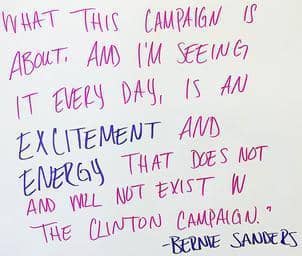 WHAT THIS CAMPAIGN IS
ABOUT. AND I'M SEEING
IT EVERY DAY, IS AN
EXCITEMENT AND
ENERGY THAT DOES NOT
AND WILL NOT EXIST IN
THE CLINTON CAMPAIGN."
-BERNIE SANDERS